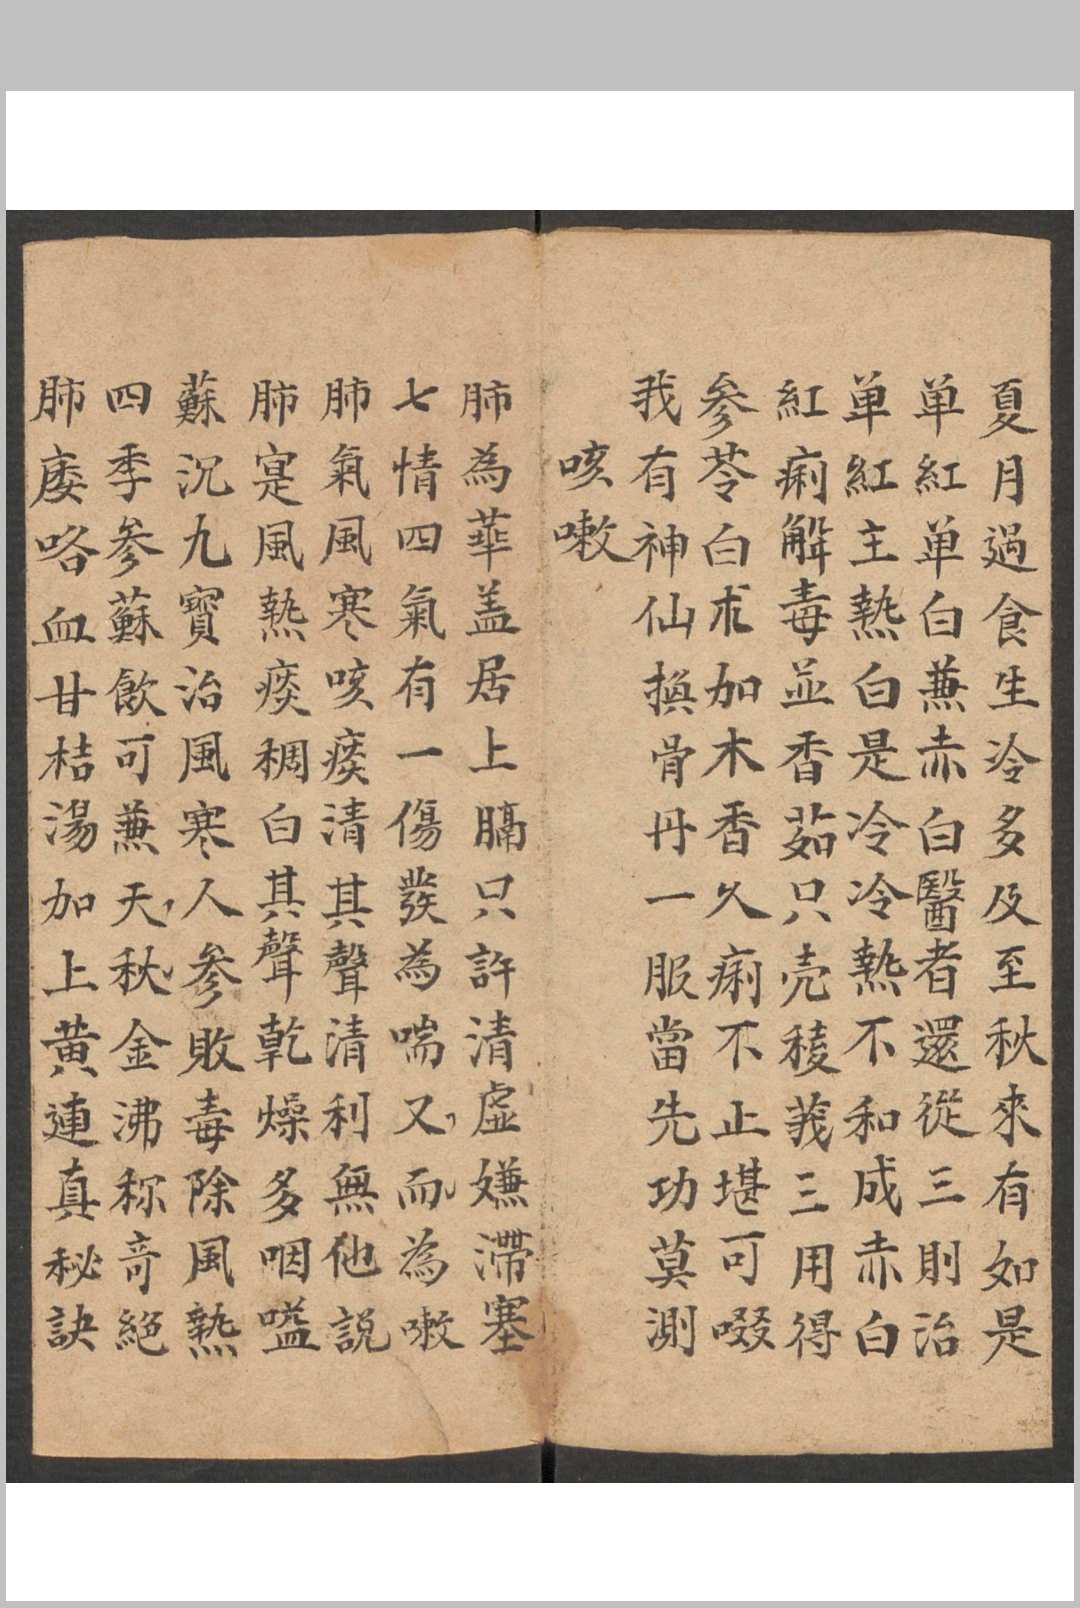 夏月過食生冷多及至秋來有如是
单紅单白蕪赤白醫者還從三則治
单紅主熱白是冷冷熱不和成赤白
紅痢解毒並香茹只壳稜莪三用得
參苓白朮加木香久痢不止堪可啜
我有神仙換骨丹一服當先功莫測
咳嗽
肺為華盖居上膈只許清虛嫌滯塞
七情四氣有一傷發為喘又而為嗽
肺氣風寒咳痰清其聲清利無他説
肺寔風熱痰稠白其聲乾燥多咽嗌
蘇沉九寳治風寒人參敗毒除風熱
四季參蘇飲可兼天秋金沸称奇絕
肺痿咯血甘桔湯加上黄連真秘訣